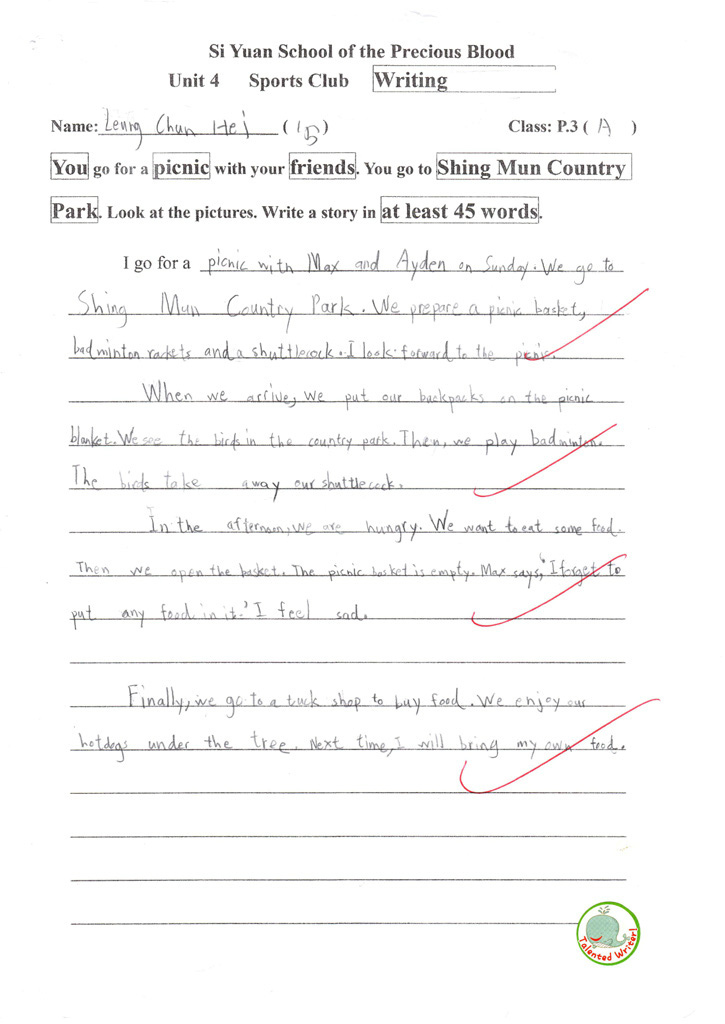 Si Yuan School of the Precious Blood
Unit 4 Sports Club Writing
Name: Leung Chun Hei ( 15 ) Class: P.3 ( A )
You go for a picnic with your friends. You go to Shing Mun Country
Park. Look at the pictures. Write a story in at least 45 words.
I go for a picnic with Max and Ayden on Sunday. We go to
Shing Mun Country Park. We prepare a picnic basket,
badminton rackets and a shuttlecock. I look forward to the picnic.
When we arrive, we put our backpacks on the picnic
blanket. We see the birds in the country park. Then, we play badminton.
The birds take away our shuttlecock.
In the afternoon, we are hungry. We want to eat some food.
Then we open the basket. The picnic basket is empty. Max says, 'I forget to
put any food in it.' I feel sad.
Finally, we go to a tuck shop to buy food. We enjoy our
hotdogs under the tree. Next time, I will bring my own food.
Talented Writer!